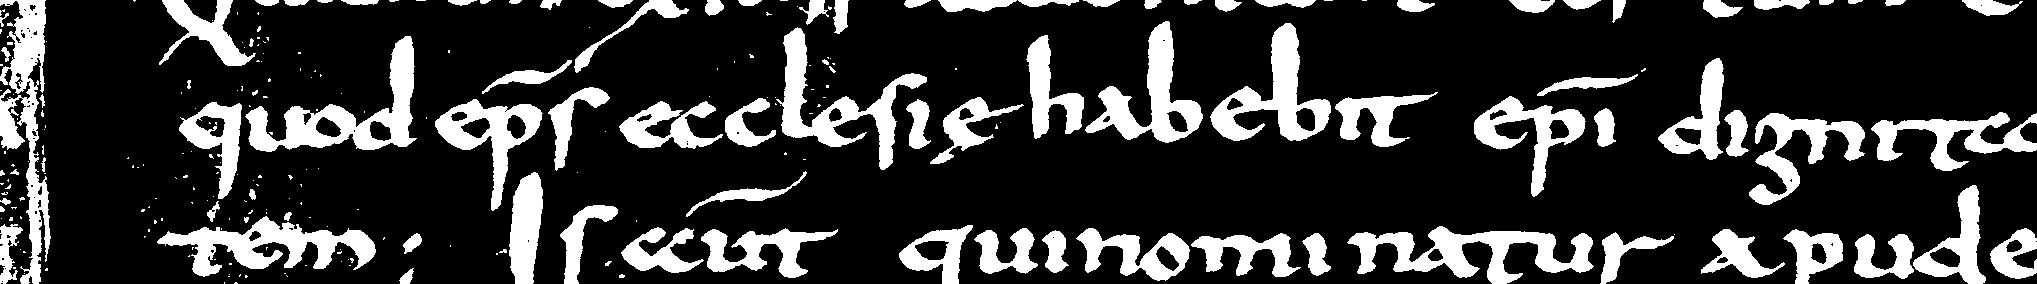 quod ep̅s ecclesię habebit ep̅i dignita
tem; Is aut̅ qui nominatur apud e